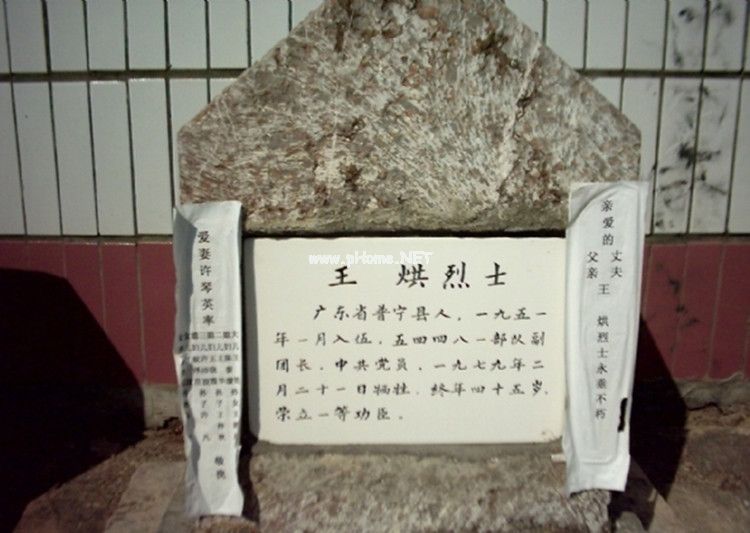 www.plHome.NET
王 烘烈士
广东省普宁县人，一九五一
年一月入伍，五四四八一部队副
团长，中共党员，一九七九年二
月二十一日牺牲，终年四十五岁，
荣立一等功臣。
亲爱的 丈夫
父亲 王 烘烈士永垂不朽
爱妻许琴英率
敬挽